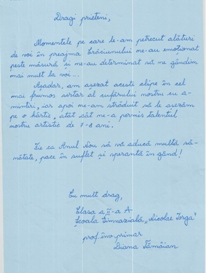 Dragi prieteni,
Momentele pe care le-am petrecut alături
de voi în preajma Crăciunului ne-au emoționat
peste măsură și ne-au determinat să ne gândim
mai mult la voi...
Așadar, am așezat aceste clipe în cel
mai frumos sertar al sufletului nostru cu a-
mintiri, iar apoi ne-am străduit să le așternem
pe o hârtie, atât cât ne-a permis talentul
nostru artistic de 7-8 ani.
Fie ca Anul Nou să vă aducă multă să-
nătate, pace în suflet și speranță în gând!
Cu mult drag,
Clasa a II-a A
Școala Gimnazială „Nicolae Iorga"
prof. înv. primar